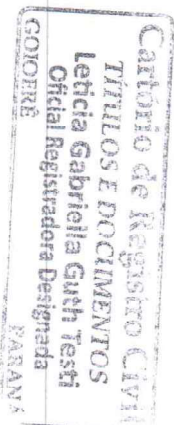 Cartório de Registro Civil
TITULOS E DOCUMENTOS
Leticia Gabriella Guth Testi
Oficial Registradora Designada
GOIOERÊ PARANÁ